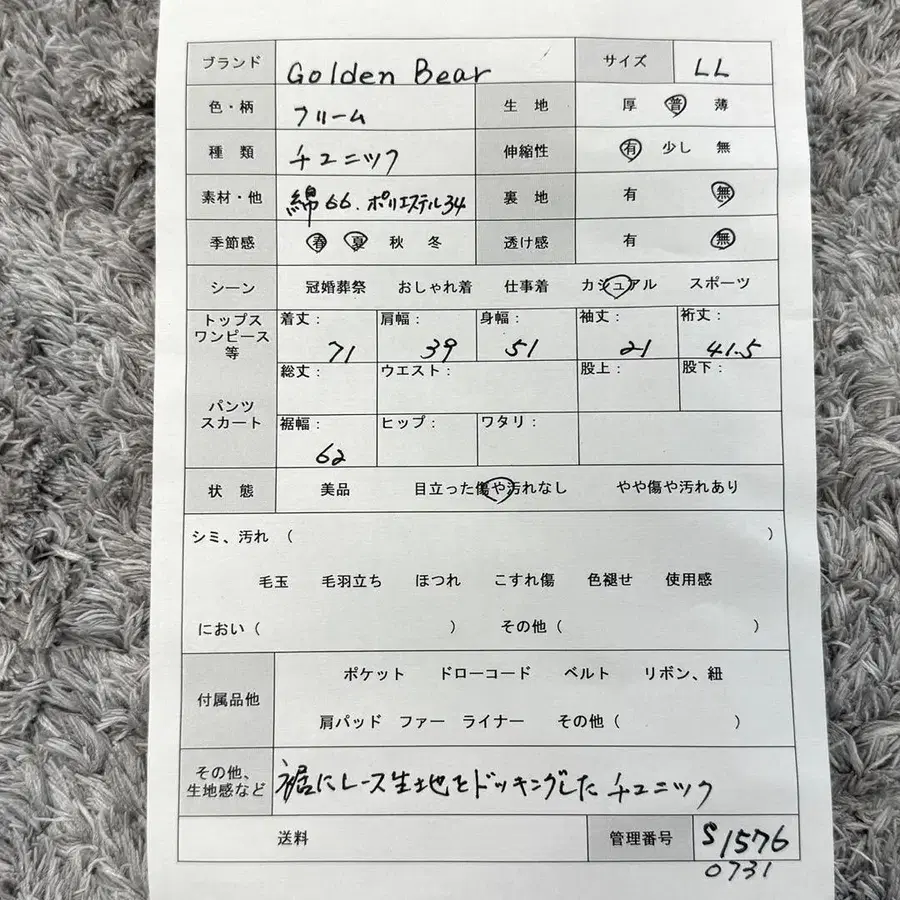 ブランド Golden Bear サイズ LL
色・柄 クリーム 生地 厚 普 薄
種類 チュニック 伸縮性 有 少し 無
素材・他 綿66.ポリエステル34 裏地 有 無
季節感 春 夏 秋 冬 透け感 有 無
シーン 冠婚葬祭 おしゃれ着 仕事着 カジュアル スポーツ
トップス
ワンピース
等
着丈: 71 肩幅: 39 身幅: 51 袖丈: 21 裄丈: 41.5
パンツ
スカート
総丈: ウエスト: 股上: 股下:
裾幅: 62 ヒップ: ワタリ:
状態 美品 目立った傷や汚れなし やや傷や汚れあり
シミ、汚れ ( )
毛玉 毛羽立ち ほつれ こすれ傷 色褪せ 使用感
におい ( ) その他 ( )
付属品他
ポケット ドローコード ベルト リボン、紐
肩パッド ファー ライナー その他 ( )
その他、
生地感など
裾にレース生地をドッキングしたチュニック
送料 管理番号 S1576
0731